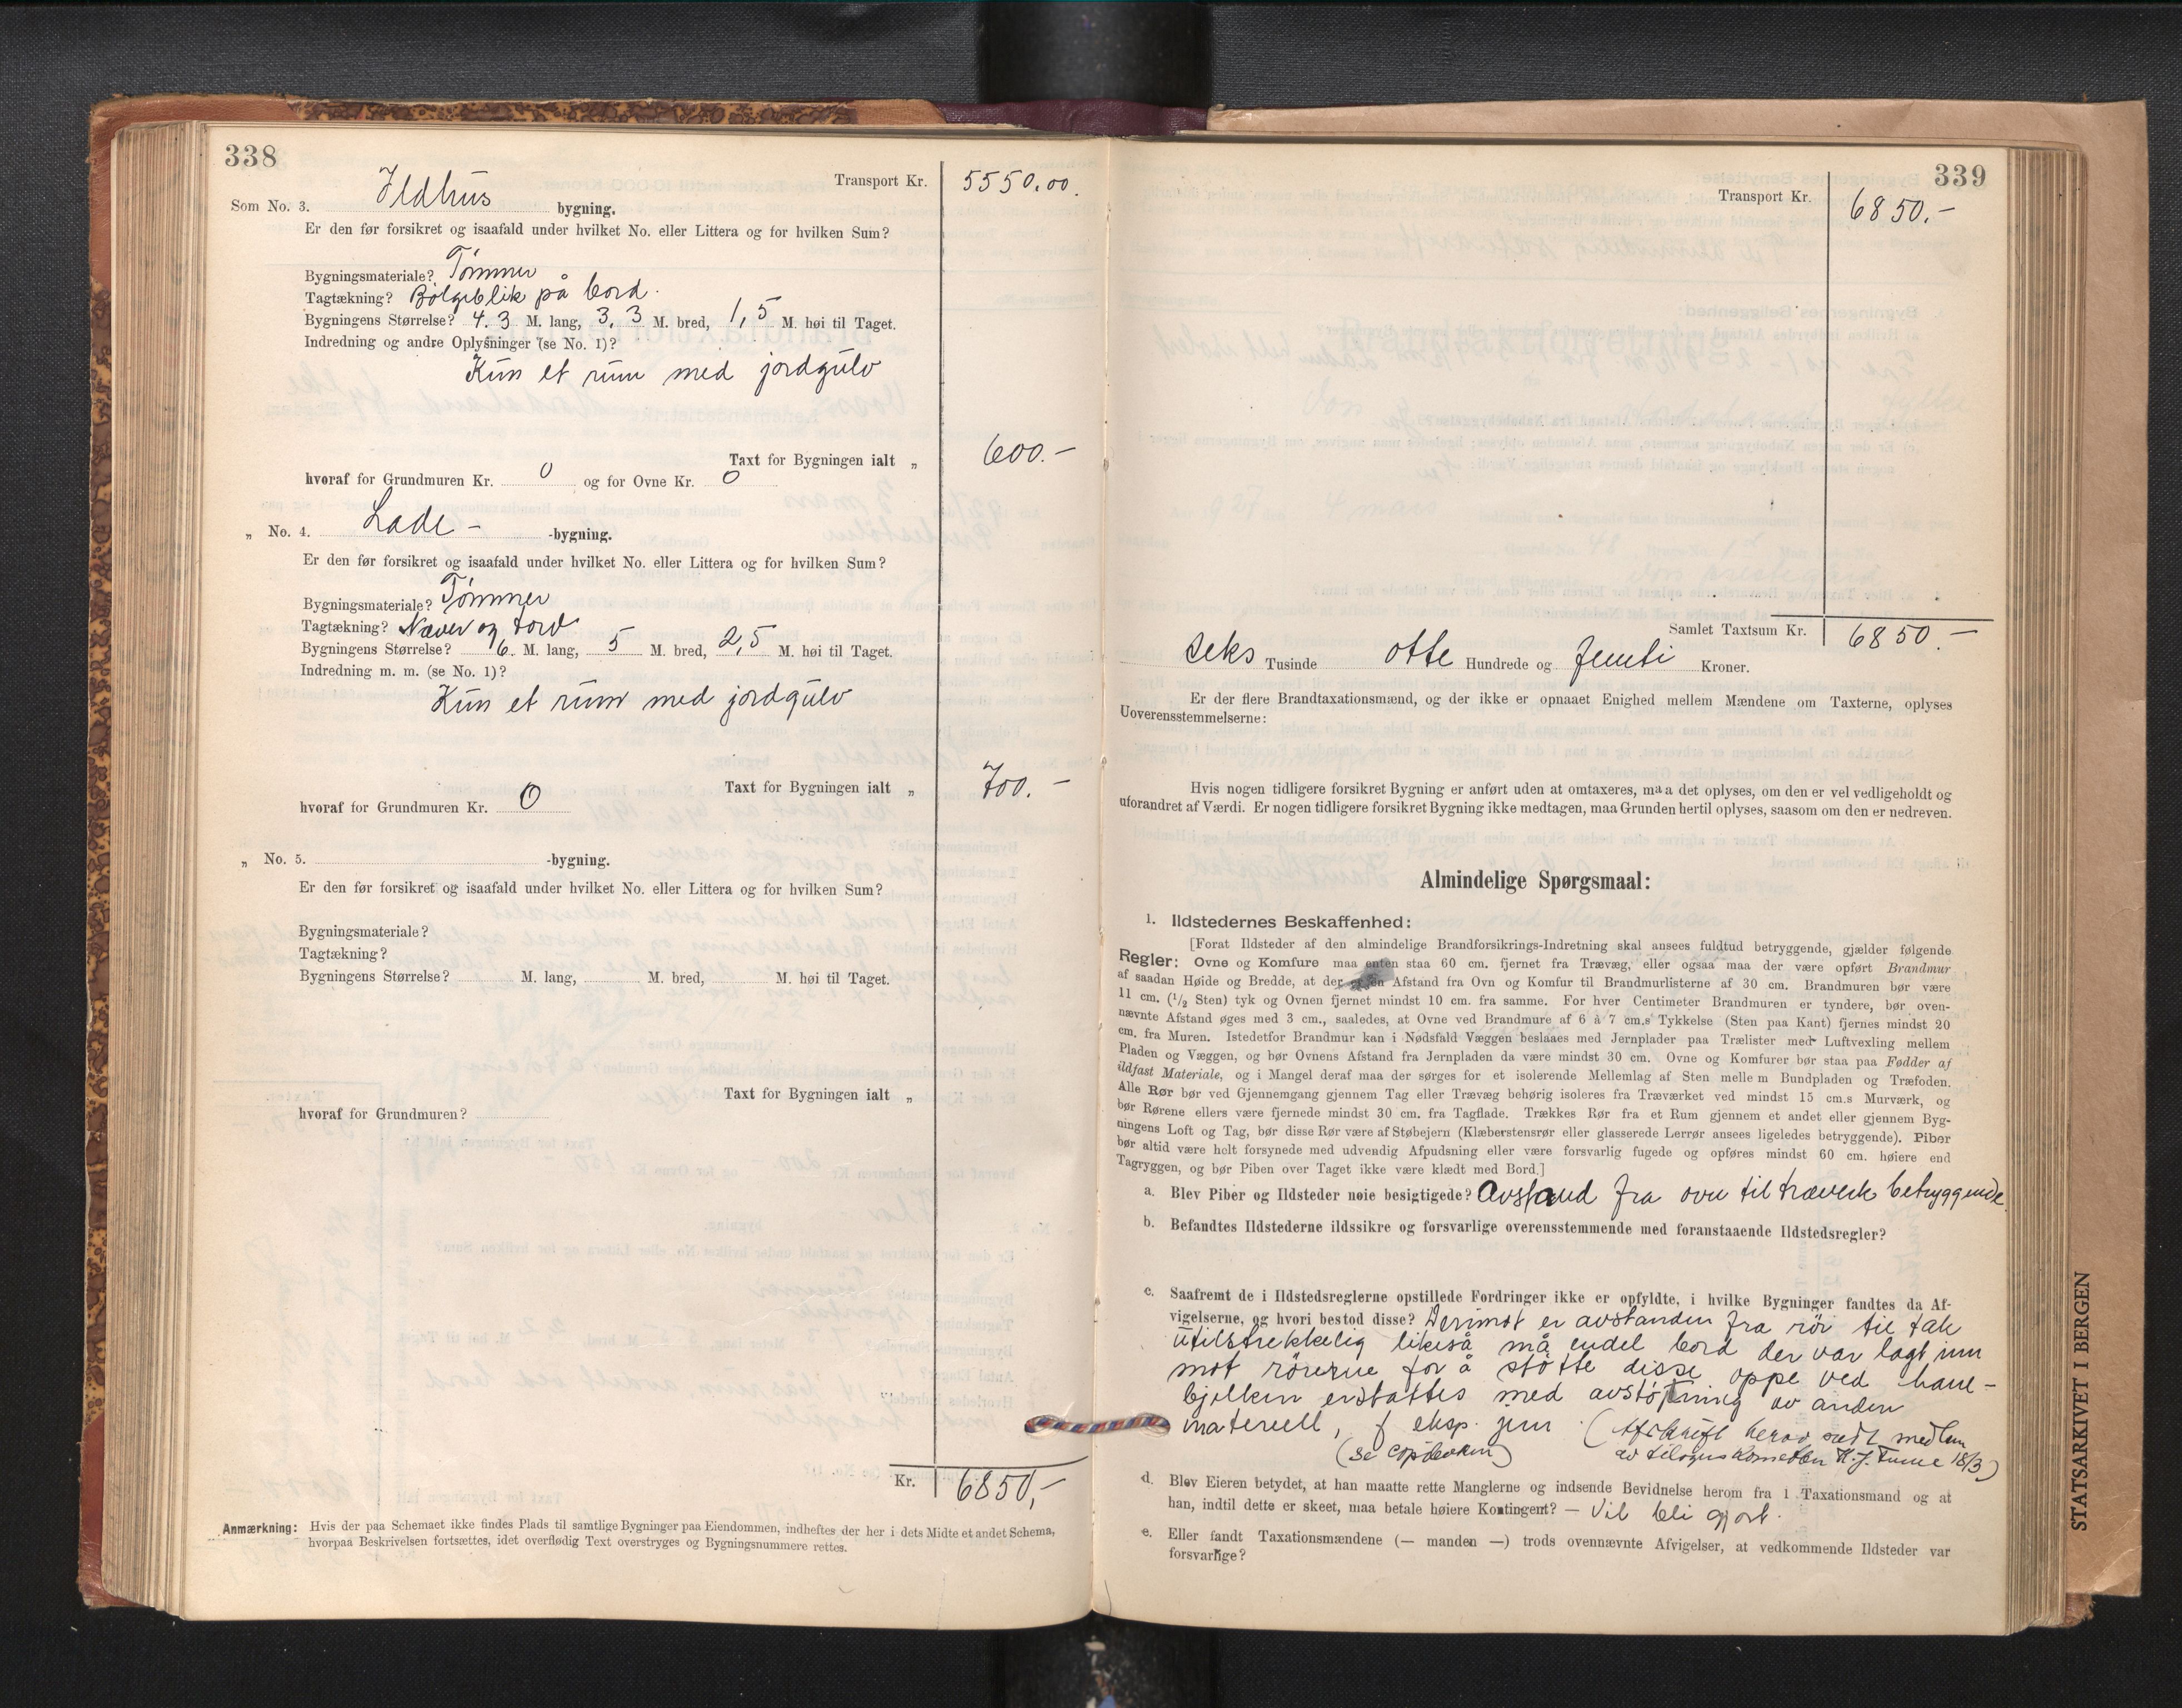 338
Transport Kr. 5550.00.
Som No. 3. Ildhus bygning.
Er den før forsikret og isaafald under hvilket No. eller Littera og for hvilken Sum?
Bygningsmateriale? Tømmer
Tagtækning? Bølgeblik på bord.
Bygningens Størrelse? 4.3 M. lang, 3,3 M. bred, 1,5 M. høi til Taget.
Indredning og andre Oplysninger (se No. 1)?
Kun et rum med jordgulv
Taxt for Bygningen ialt „ 600.-
hvoraf for Grundmuren Kr. 0 og for Ovne Kr. 0
„ No. 4. Lade - -bygning.
Er den før forsikret og isaafald under hvilket No. eller Littera og for hvilken Sum?
Bygningsmateriale? Tømmer
Tagtækning? Næver og torv
Bygningens Størrelse? 6. M. lang, 5 M. bred, 2,5 M. høi til Taget.
Indredning m. m. (se No. 1)?
Kun et rum med jordgulv
Taxt for Bygningen ialt „ 700.-
hvoraf for Grundmuren Kr. 0
„ No. 5. -bygning.
Er den før forsikret og isaafald under hvilket No. eller Littera og for hvilken Sum?
Bygningsmateriale?
Tagtækning?
Bygningens Størrelse? M. lang, M. bred, M. høi til Taget.
Taxt for Bygningen ialt „
hvoraf for Grundmuren?
Kr. 6850,-
Anmærkning: Hvis der paa Schemaet ikke findes Plads til samtlige Bygninger paa Eiendommen, indheftes der her i dets Midte et andet Schema,
hvorpaa Beskrivelsen fortsættes, idet overflødig Text overstryges og Bygningsnummere rettes.
339
Transport Kr. 6850.-
Samlet Taxtsum Kr. 6850.-
seks Tusinde otte Hundrede og femti Kroner.
Er der flere Brandtaxationsmænd, og der ikke er opnaaet Enighed mellem Mændene om Taxterne, oplyses
Uoverensstemmelserne:
Hvis nogen tidligere forsikret Bygning er anført uden at omtaxeres, maa det oplyses, om den er vel vedligeholdt og
uforandret af Værdi. Er nogen tidligere forsikret Bygning ikke medtagen, maa Grunden hertil oplyses, saasom om den er nedreven.
Almindelige Spørgsmaal:
1. Ildstedernes Beskaffenhed:
[Forat Ildsteder af den almindelige Brandforsikrings-Indretning skal ansees fuldtud betryggende, gjælder følgende
Regler: Ovne og Komfure maa enten staa 60 cm. fjernet fra Trævæg, eller ogsaa maa der være opført Brandmur
af saadan Høide og Bredde, at der Afstand fra Ovn og Komfur til Brandmurlisterne af 30 cm. Brandmuren bør være
11 cm. (1/2 Sten) tyk og Ovnen fjernet mindst 10 cm. fra samme. For hver Centimeter Brandmuren er tyndere, bør oven-
nævnte Afstand øges med 3 cm., saaledes, at Ovne ved Brandmure af 6 à 7 cm.s Tykkelse (Sten paa Kant) fjernes mindst 20
cm. fra Muren. Istedetfor Brandmur kan i Nødsfald Væggen beslaaes med Jernplader paa Trælister med Luftvexling mellem
Pladen og Væggen, og bør Ovnens Afstand fra Jernpladen da være mindst 30 cm. Ovne og Komfurer bør staa paa Fødder af
ildfast Materiale, og i Mangel deraf maa der sørges for et isolerende Mellemlag af Sten mellem Bundpladen og Træfoden.
Alle Rør bør ved Gjennemgang gjennem Tag eller Trævæg behørig isoleres fra Træværket ved mindst 15 cm.s Murværk, og
bør Rørene ellers være fjernede mindst 30 cm. fra Tagflade. Trækkes Rør fra et Rum gjennem et andet eller gjennem Byg-
ningens Loft og Tag, bør disse Rør være af Støbejern (Klæberstensrør eller glasserede Lerrør ansees ligeledes betryggende). Piber
bør altid være helt forsynede med udvendig Afpudsning eller være forsvarlig fugede og opføres mindst 60 cm. høiere end
Tagryggen, og bør Piben over Taget ikke være klædt med Bord.]
a. Blev Piber og Ildsteder nøie besigtigede? Avstand fra ovn til træverk betryggende.
b. Befandtes Ildstederne ildssikre og forsvarlige overensstemmende med foranstaaende Ildstedsregler?
c. Saafremt de i Ildstedsreglerne opstillede Fordringer ikke er opfyldte, i hvilke Bygninger fandtes da Af-
vigelserne, og hvori bestod disse? Derimot er avstanden fra rør til tak
utilstrekkelig likeså må endel bord der var lagt inn
mot rørerne for å støtte disse oppe ved hane-
bjelken erstattes med avstøtning av anden
materiell, f eksp. jern (Afskrift herav sedt medlem
(se copiboken) av tilsynskomiteen H. J. 18/3)
d. Blev Eieren betydet, at han maatte rette Manglerne og indsende Bevidnelse herom fra 1 Taxationsmand og at
han, indtil dette er skeet, maa betale høiere Kontingent? — Vil bli gjort.
e. Eller fandt Taxationsmændene (— manden —) trods ovennævnte Afvigelser, at vedkommende Ildsteder var
forsvarlige?
STATSARKIVET I BERGEN